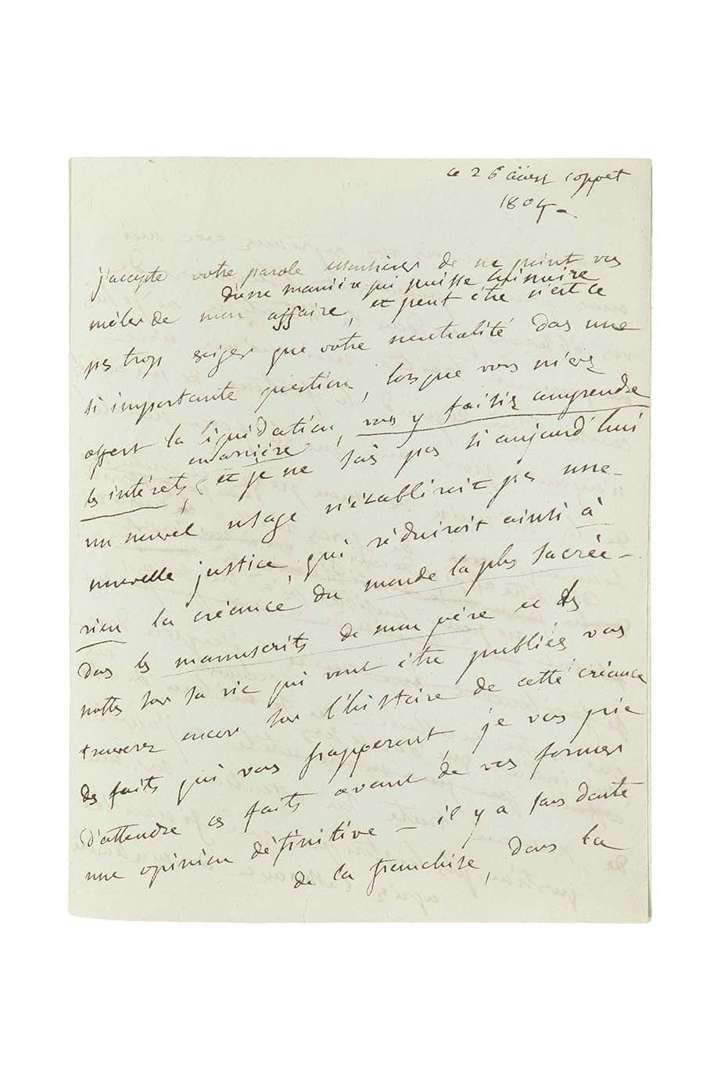 ce 26 aoust coppet
1804
j'accepte votre parole de ne point vous
d'une manière qui puisse
mêler de mon affaire, et peut être n'est ce
pas trop exiger que votre neutralité dans une
si importante question, lorsque vous m'avez
offert la liquidation, vous y faisiez comprendre
les intérets, et je ne sais pas si aujourd'hui
un nouvel usage n'établiroit pas une
nouvelle justice qui réduiroit ainsi à
rien la créance du monde la plus sacrée –
dans les manuscrits de mon père et les
nottes sur sa vie qui vont être publiés vous
trouverez encor sur l'histoire de cette créance
des faits qui vous frapperont je vous prie
d'attendre ces faits avant de vous former
une opinion définitive – il y a sans doute
de la franchise, dans la